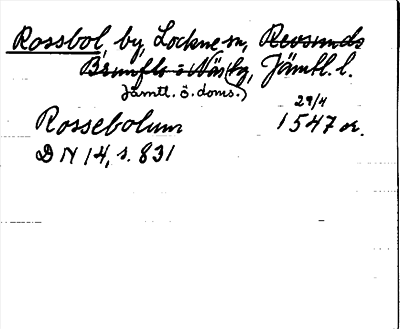 Rossbol, by, Lockne sn, Revsunds
Brunflo o Näs tg, Jämtl. l.
Jämtl. ö. doms.)
29/4
Rossebolum 1547 or.
DN 14, s. 831